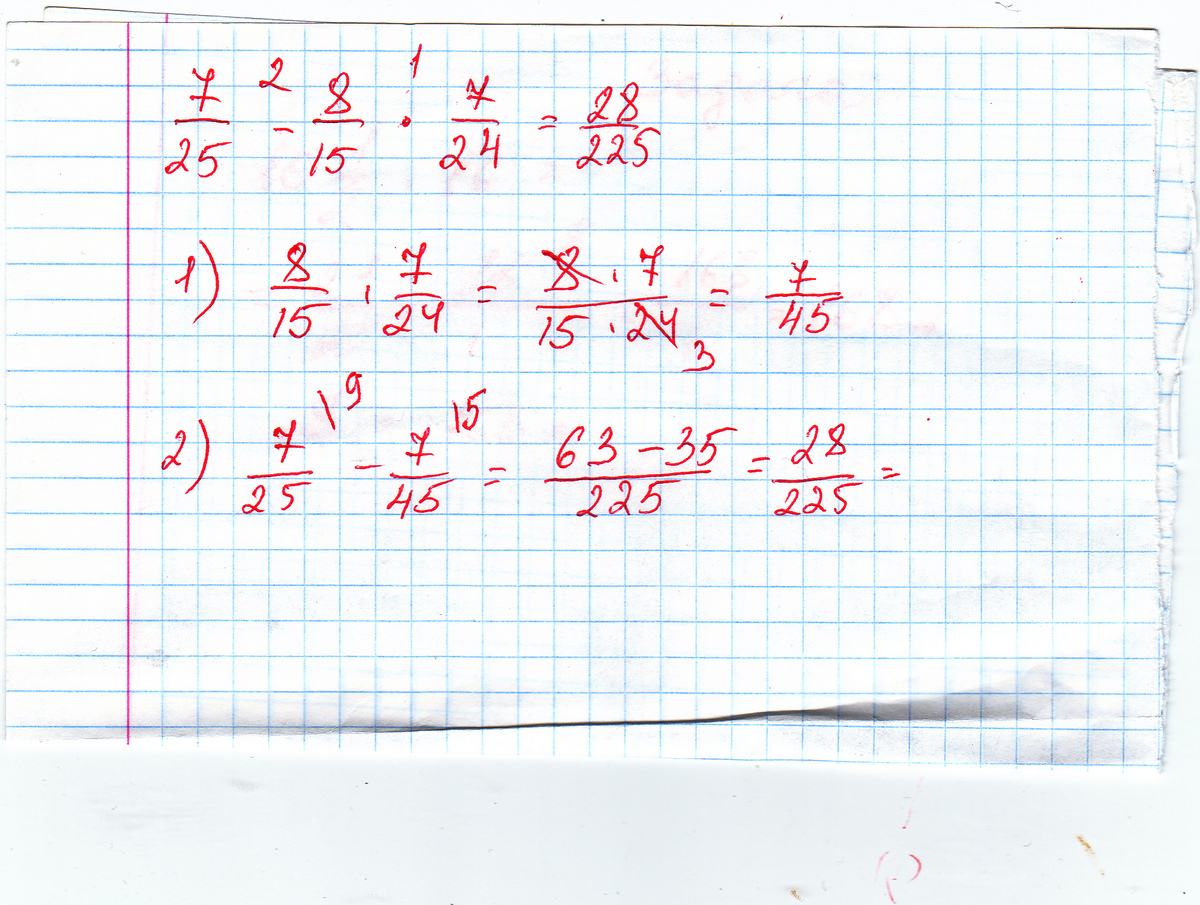 7/25 -² 8/15 ·¹ 7/24 = 28/225
1) 8/15 · 7/24 = 8 · 7/15 · 24 3 = 7/45
2) 7/25 \9 - 7/45 \5 = 63 - 35/225 = 28/225 =